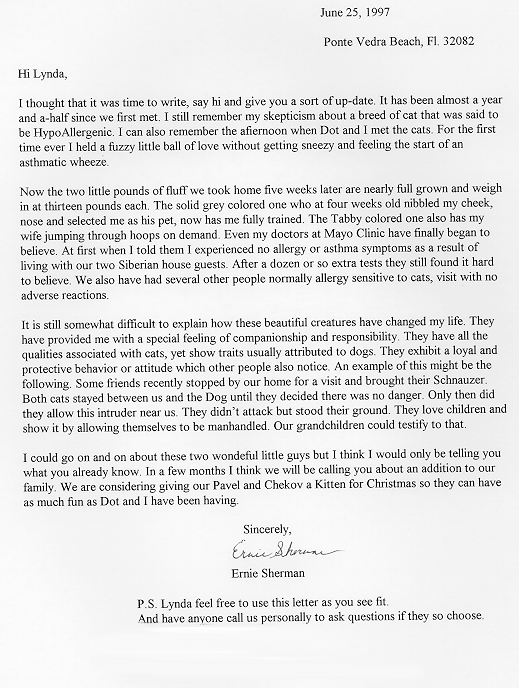 June 25, 1997
Ponte Vedra Beach, Fl. 32082
Hi Lynda,
I thought that it was time to write, say hi and give you a sort of up-date. It has been almost a year
and a-half since we first met. I still remember my skepticism about a breed of cat that was said to
be HypoAllergenic. I can also remember the afternoon when Dot and I met the cats. For the first
time ever I held a fuzzy little ball of love without getting sneezy and feeling the start of an
asthmatic wheeze.
Now the two little pounds of fluff we took home five weeks later are nearly full grown and weigh
in at thirteen pounds each. The solid grey colored one who at four weeks old nibbled my cheek,
nose and selected me as his pet, now has me fully trained. The Tabby colored one also has my
wife jumping through hoops on demand. Even my doctors at Mayo Clinic have finally began to
believe. At first when I told them I experienced no allergy or asthma symptoms as a result of
living with our two Siberian house guests. After a dozen or so extra tests they still found it hard
to believe. We also have had several other people normally allergy sensitive to cats, visit with no
adverse reactions.
It is still somewhat difficult to explain how these beautiful creatures have changed my life. They
have provided me with a special feeling of companionship and responsibility. They have all the
qualities associated with cats, yet show traits usually attributed to dogs. They exhibit a loyal and
protective behavior or attitude which other people also notice. An example of this might be the
following. Some friends recently stopped by our home for a visit and brought their Schnauzer.
Both cats stayed between us and the Dog until they decided there was no danger. Only then did
they allow this intruder near us. They didn't attack but stood their ground. They love children and
show it by allowing themselves to be manhandled. Our grandchildren could testify to that.
I could go on and on about these two wondeful little guys but I think I would only be telling you
what you already know. In a few months I think we will be calling you about an addition to our
family. We are considering giving our Pavel and Chekov a Kitten for Christmas so they can have
as much fun as Dot and I have been having.
Sincerely,
Ernie Sherman
Ernie Sherman
P.S. Lynda feel free to use this letter as you see fit.
And have anyone call us personally to ask questions if they so choose.